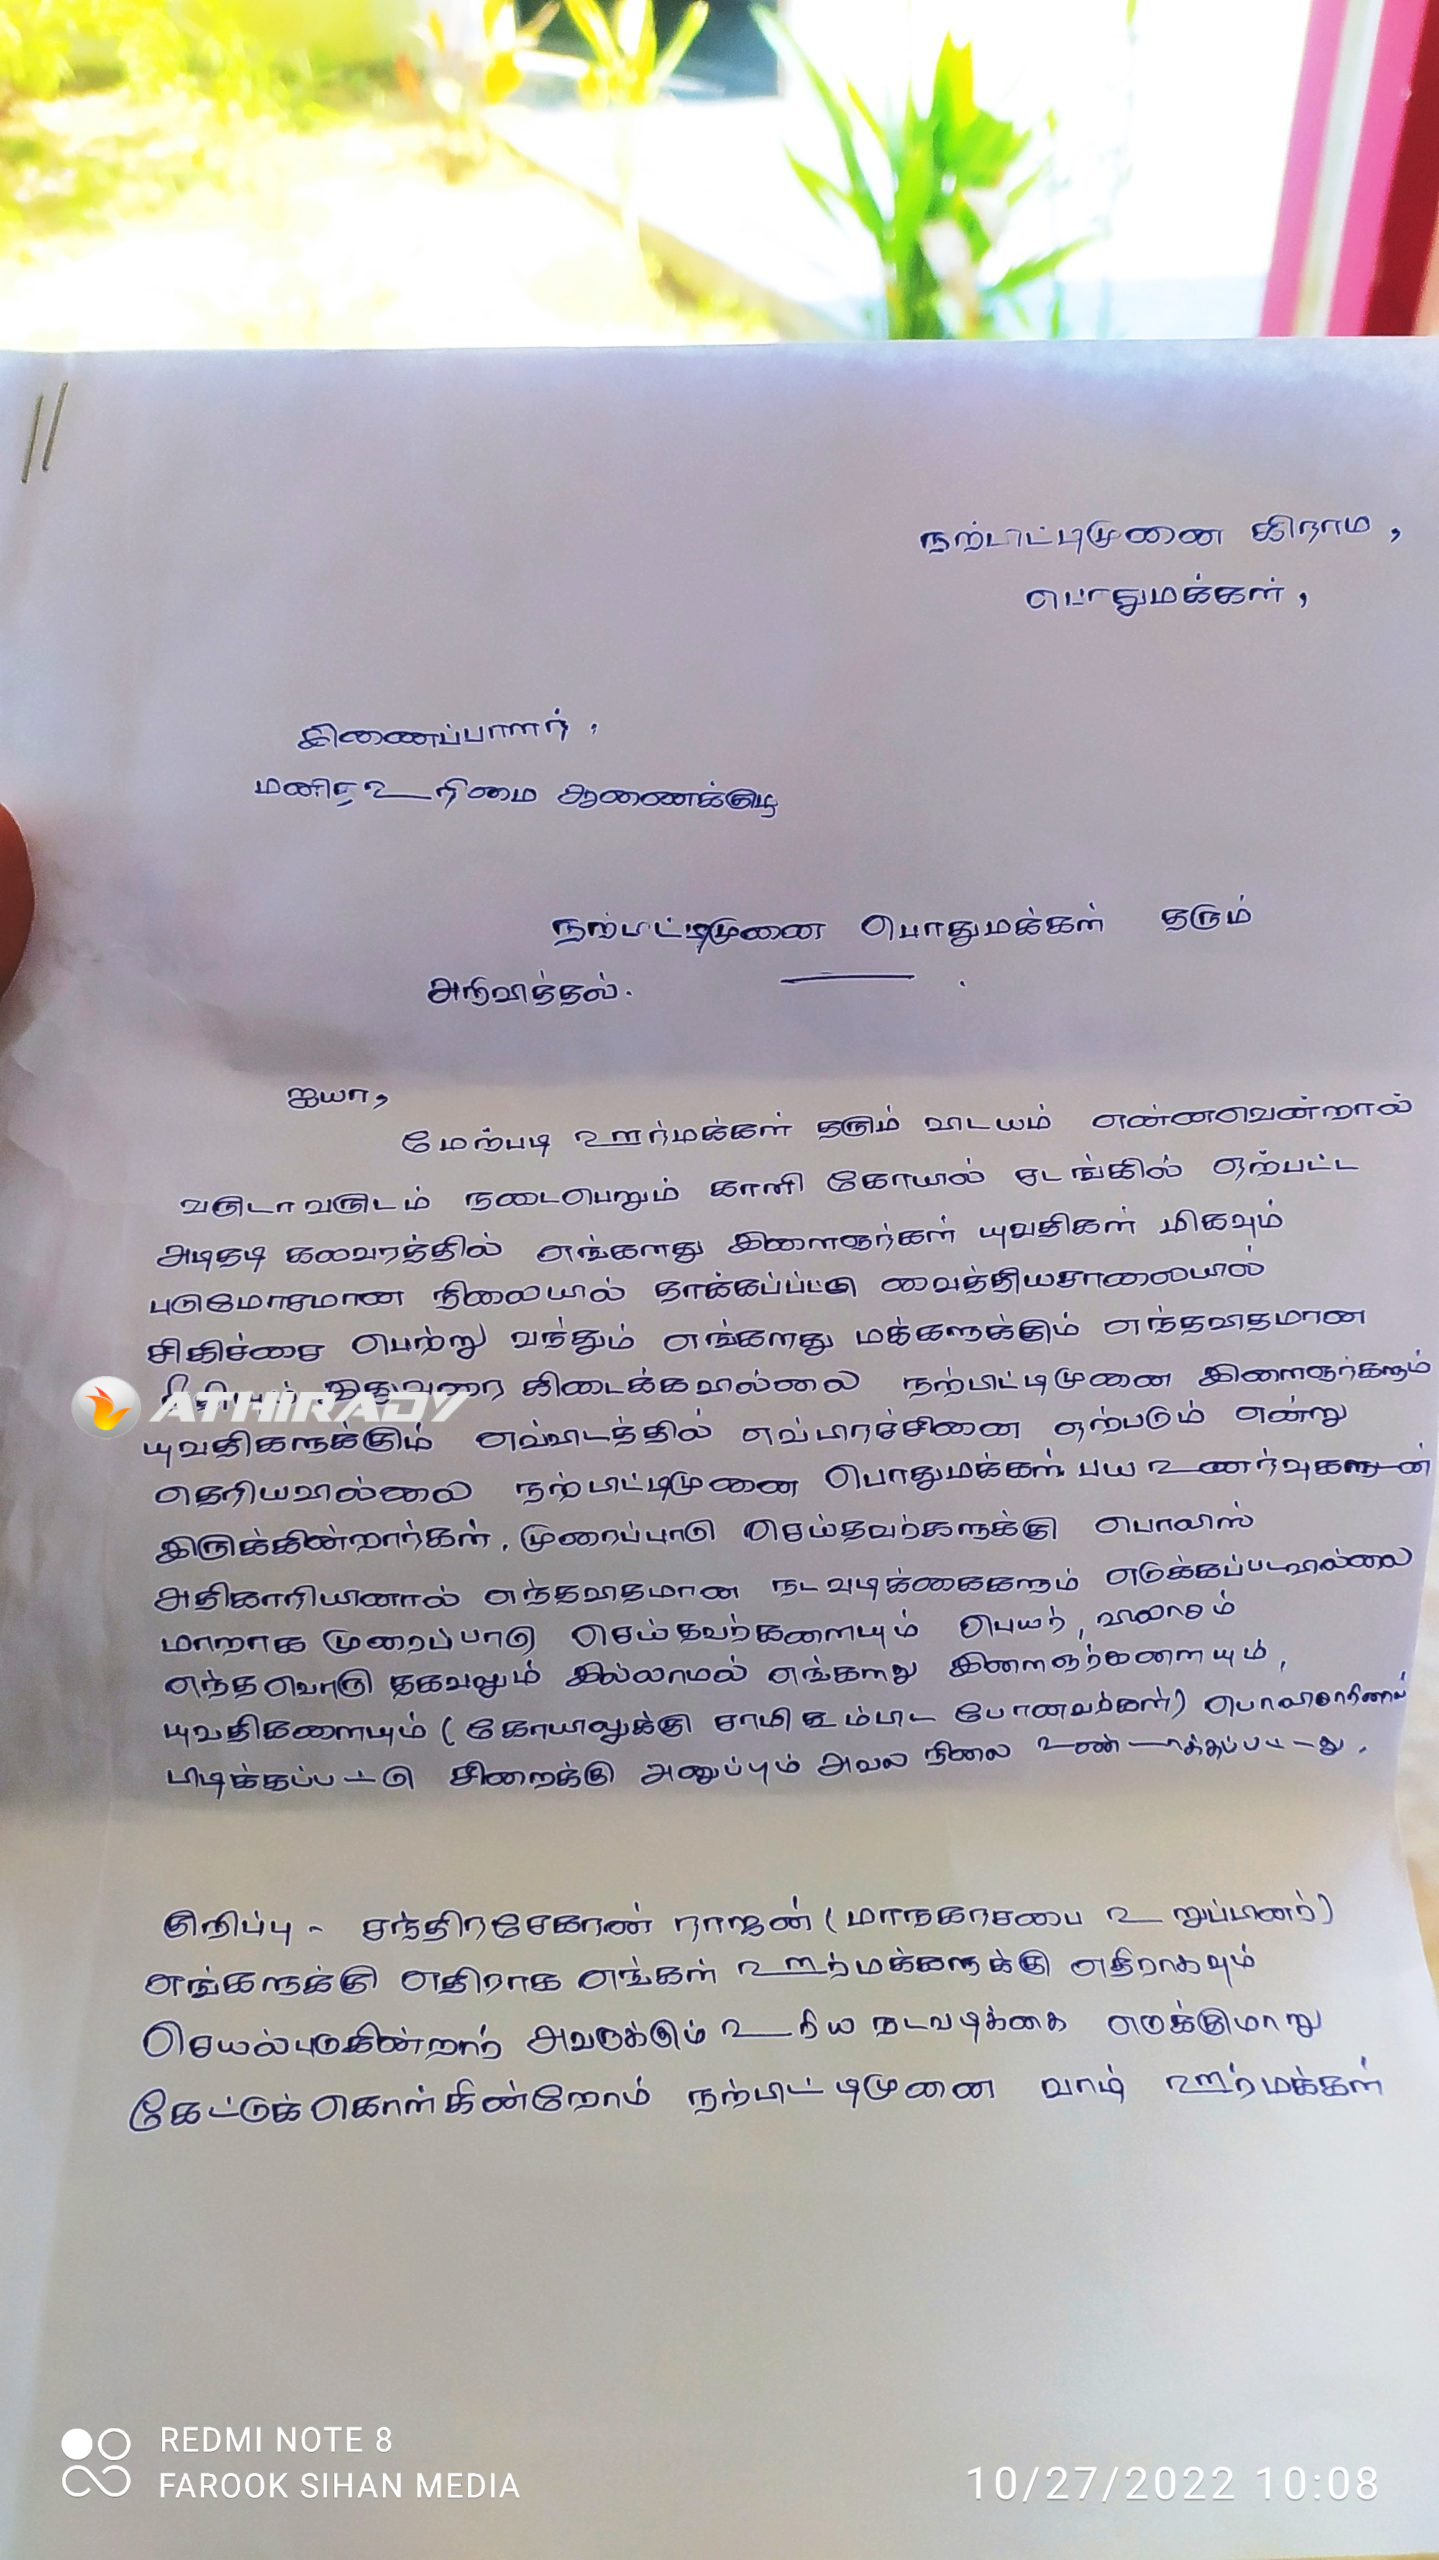 நற்பிட்டிமுனை கிராம,
பொதுமக்கள்,
இணைப்பாளர்,
மனித உரிமை ஆணைக்குழு
நற்பிட்டிமுனை பொதுமக்கள் தரும்
அறிவித்தல்.
ஐயா,
மேற்படி ஊர்மக்கள் தரும் விடயம் என்னவென்றால்
வருடா வருடம் நடைபெறும் காளி கோயில் சடங்கில் ஏற்பட்ட
அடிதடி கலவரத்தில் எங்களது இளைஞர்கள் யுவதிகள் மிகவும்
படுமோசமான நிலையில் தாக்கப்பட்டு வைத்தியசாலையில்
சிகிச்சை பெற்று வந்தும் எங்களது மக்களுக்கும் எந்தவிதமான
இதுவரை கிடைக்கவில்லை நற்பிட்டிமுனை இளைஞர்களும்
ATHIRADY
யுவதிகளுக்கும் எவ்விடத்தில் எவ்பிரச்சினை ஏற்படும் என்று
தெரியவில்லை நற்பிட்டிமுனை பொதுமக்கள் பய உணர்வுகளுடன்
இருக்கின்றார்கள். முறைப்பாடு செய்தவர்களுக்கு பொலிஸ்
அதிகாரியினால் எந்தவிதமான நடவடிக்கைகளும் எடுக்கப்படவில்லை
மாறாக முறைப்பாடு செய்தவர்களையும் பெயர், விலாசம்
எந்தவொரு தகவலும் இல்லாமல் எங்களது இளைஞர்களையும்,
யுவதிகளையும் (கோயிலுக்கு சாமி கும்பிட போனவர்கள்) பொலிசாரினால்
பிடிக்கப்பட்டு சிறைக்கு அனுப்பும் அவல நிலை
குறிப்பு - சந்திரசேகரன் ராஜன் (மாநகரசபை உறுப்பினர்)
எங்களுக்கு எதிராக எங்கள் ஊர்மக்களுக்கு எதிராகவும்
செயல்படுகின்றார் அவருக்கும் உரிய நடவடிக்கை எடுக்குமாறு
கேட்டுக்கொள்கின்றோம் நற்பிட்டிமுனை வாழ் ஊர்மக்கள்
REDMI NOTE 8
FAROOK SIHAN MEDIA
10/27/2022 10:08